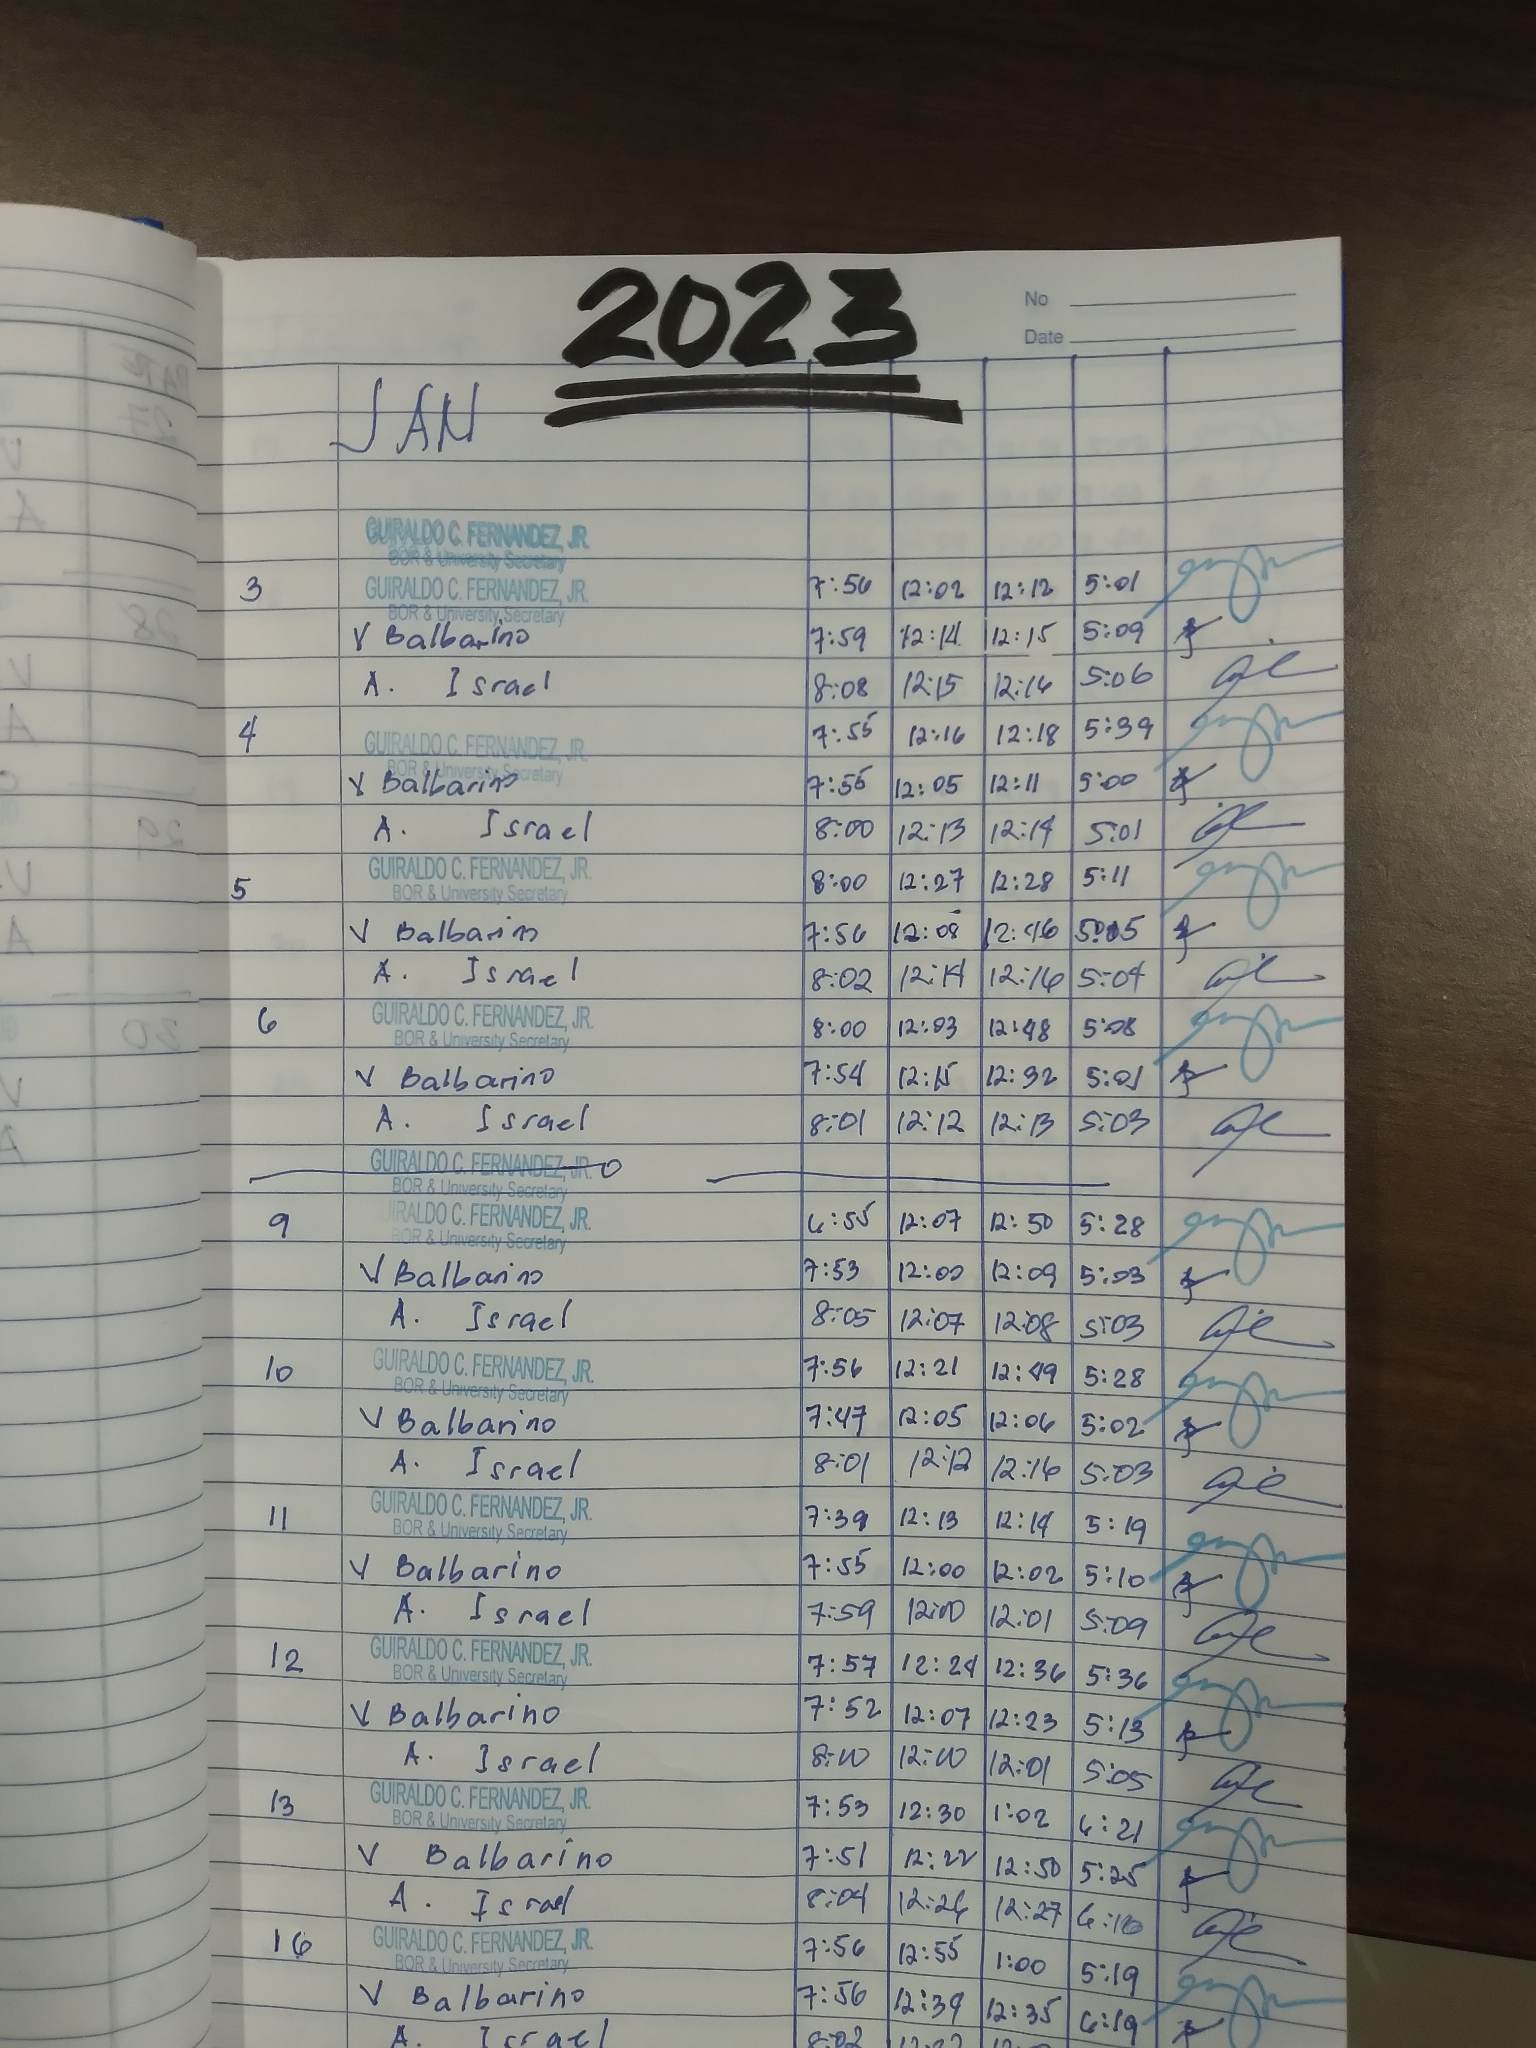 2023
No
Date
JAN
GUIRALDO C. FERNANDEZ, JR.
BOR & University Secretary
3 GUIRALDO C. FERNANDEZ, JR. 7:56 12:02 12:12 5:01
BOR & University Secretary
V Balbarino 7:59 12:14 12:15 5:09
A. Israel 8:08 12:15 12:16 5:06
4 GUIRALDO C. FERNANDEZ, JR. 7:55 12:16 12:18 5:39
BOR & University Secretary
V Balbarino 7:55 12:05 12:11 5:00
A. Israel 8:00 12:13 12:14 5:01
5 GUIRALDO C. FERNANDEZ, JR. 8:00 12:27 12:28 5:11
BOR & University Secretary
V Balbarino 7:56 12:08 12:46 5:05
A. Israel 8:02 12:14 12:16 5:04
6 GUIRALDO C. FERNANDEZ, JR. 8:00 12:03 12:48 5:08
BOR & University Secretary
V Balbarino 7:54 12:15 12:32 5:01
A. Israel 8:01 12:12 12:13 5:03
GUIRALDO C. FERNANDEZ, JR.
BOR & University Secretary
9 IRALDO C. FERNANDEZ, JR. 6:55 12:07 12:50 5:28
BOR & University Secretary
V Balbarino 7:53 12:00 12:09 5:03
A. Israel 8:05 12:07 12:08 5:03
10 GUIRALDO C. FERNANDEZ, JR. 7:56 12:21 12:49 5:28
BOR & University Secretary
V Balbarino 7:47 12:05 12:06 5:02
A. Israel 8:01 12:12 12:16 5:03
11 GUIRALDO C. FERNANDEZ, JR. 7:39 12:13 12:14 5:19
BOR & University Secretary
V Balbarino 7:55 12:00 12:02 5:10
A. Israel 7:59 12:00 12:01 5:09
12 GUIRALDO C. FERNANDEZ, JR. 7:57 12:24 12:36 5:36
BOR & University Secretary
V Balbarino 7:52 12:07 12:23 5:13
A. Israel 8:00 12:00 12:01 5:05
13 GUIRALDO C. FERNANDEZ, JR. 7:53 12:30 1:02 6:21
BOR & University Secretary
V Balbarino 7:51 12:22 12:50 5:25
A. Israel 8:04 12:26 12:27 6:10
16 GUIRALDO C. FERNANDEZ, JR. 7:56 12:55 1:00 5:19
BOR & University Secretary
V Balbarino 7:56 12:34 12:35 6:19
A. Israel 8:02